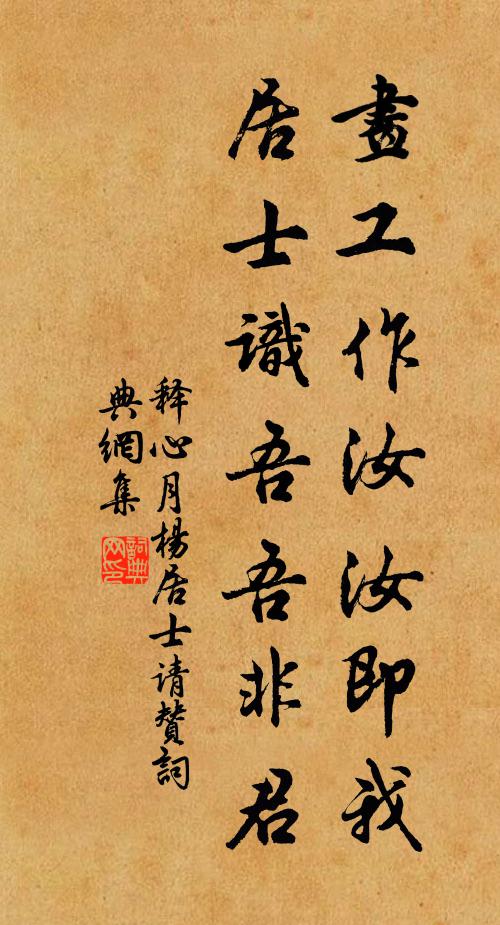 畫工作汝汝即我
居士識吾吾非君
释心月楊居士请贊詞
典網集
詞典
网印